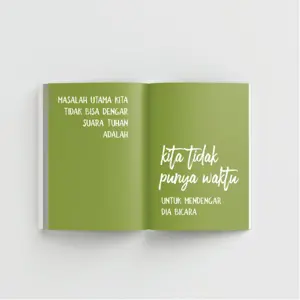 MASALAH UTAMA KITA
TIDAK BISA DENGAR
SUARA TUHAN
ADALAH
kita tidak
punya waktu
UNTUK MENDENGAR
DIA BICARA